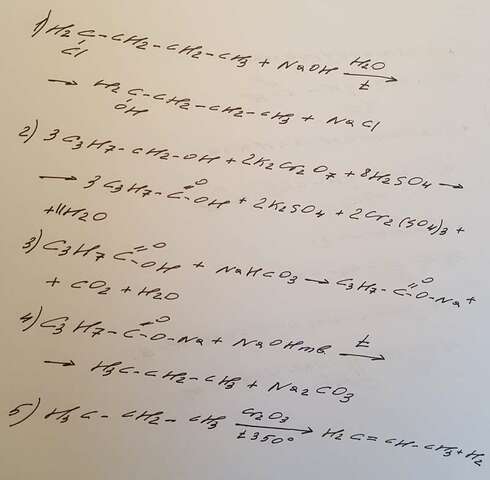 1) H2C-CH2-CH2-CH3 + NaOH H2O
Cl t
→ H2C-CH2-CH2-CH3 + NaCl
OH
2) 3C3H7-CH2-OH + 2K2Cr2O7 + 8H2SO4 →
→ 3C3H7-C=O OH + 2K2SO4 + 2Cr2(SO4)3 +
+11H2O
3) C3H7C=O OH + NaHCO3 → C3H7-C=O O-Na +
+ CO2 + H2O
4) C3H7-C=O O-Na + NaOHтв. t →
→ H3C-CH2-CH3 + Na2CO3
5) H3C-CH2-CH3 Cr2O3 t350° → H2C=CH-CH3+H2